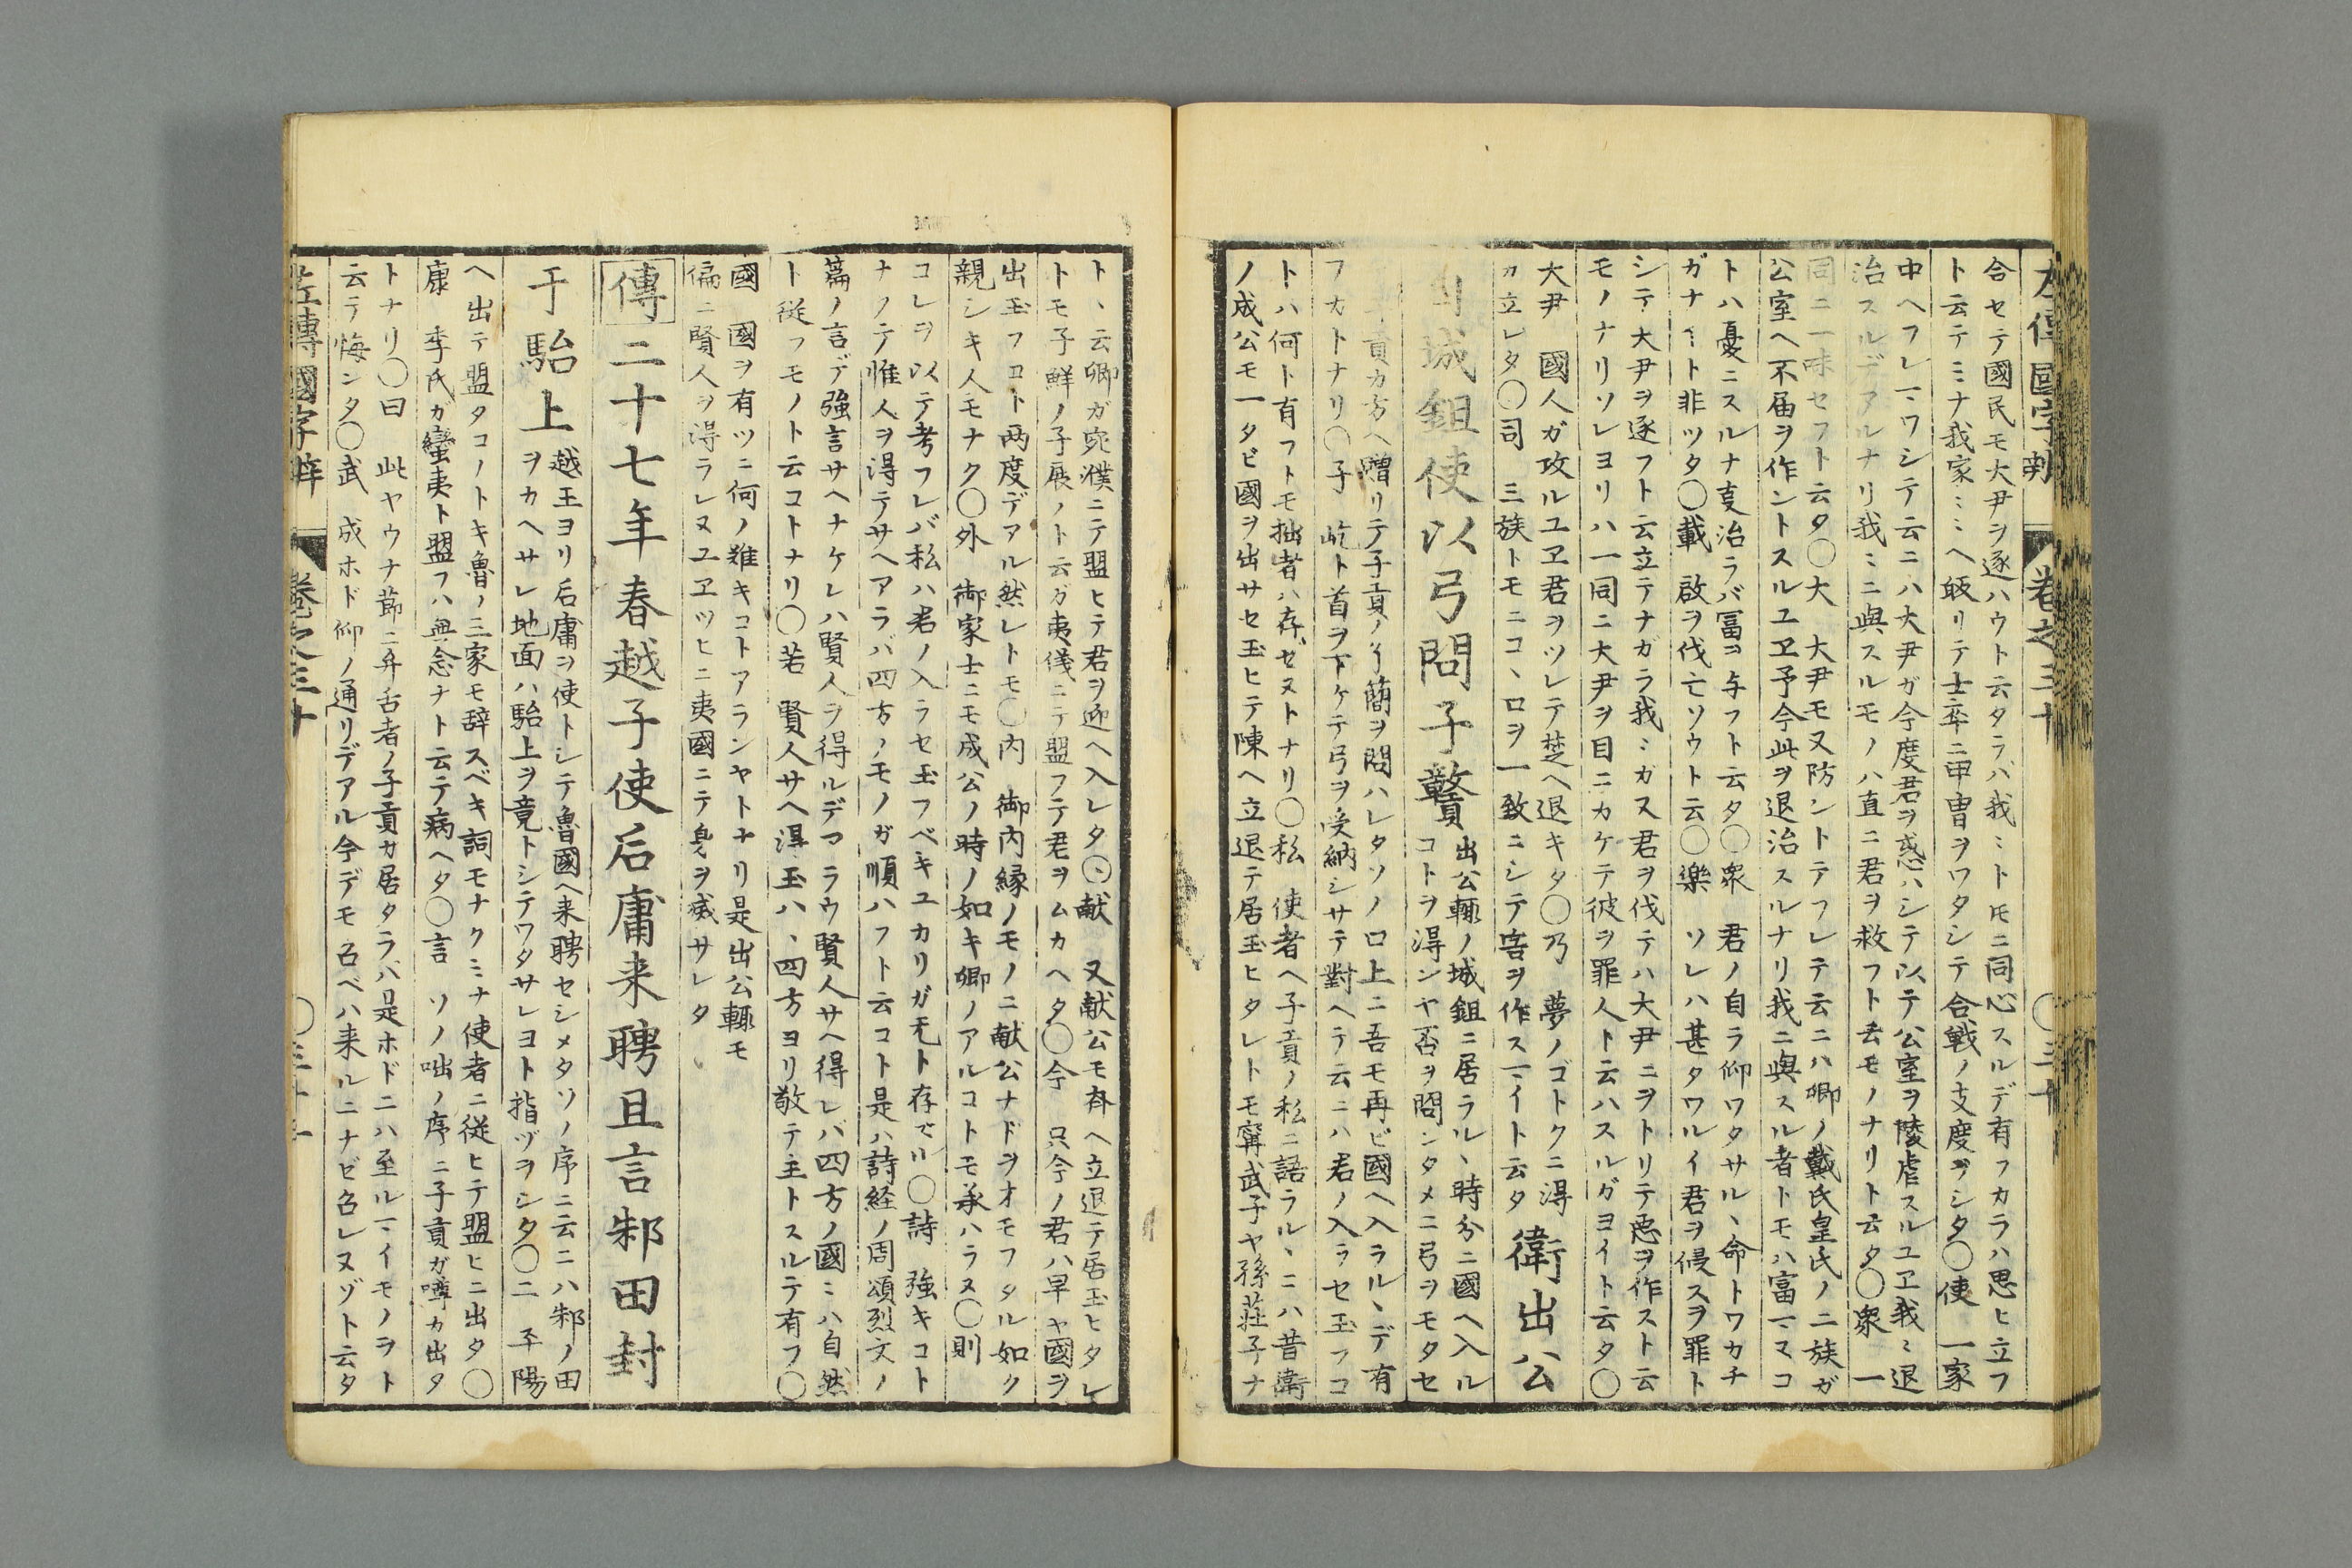 左傳國字辨 卷之三十 〇三十
合セテ國民モ大尹ヲ逐ハウト云タラバ我〻トモニ同心スルデ有フカラハ思ヒ立フ
ト云テミナ我家〻〻ヘ皈リテ士卒ニ甲冑ヲワタシテ合戦ノ支度ヲシタ〇使 一家
中ヘフレマワシテ云ニハ大尹ガ今度君ヲ惑ハシテ以テ公室ヲ陵虐スルユヱ我〻退
治スルデアルナリ我〻ニ與スルモノハ直ニ君ヲ救フト云モノナリト云タ〇衆 一
同ニ一味セフト云タ〇大 大尹モ又防ントテフレテ云ニハ卿ノ戴氏皇氏ノ二族ガ
公室ヘ不届ヲ作ントスルユヱ予今此ヲ退治スルナリ我ニ與スル者トモハ富マヌコ
トハ憂ニスルナ支治ラバ冨ヲ与フト云タ〇衆 君ノ自ラ仰ワタサル、命トワカチ
ガナイト非ツタ〇載 啟ヲ伐亡ソウト云〇樂 ソレハ甚タワルイ君ヲ侵スヲ罪ト
シテ大尹ヲ逐フト云立テナガラ我〻ガス君ヲ伐テハ大尹ニヲトリテ惡ヲ作スト云
モノナリソレヨリハ一同ニ大尹ヲ目ニカケテ彼ヲ罪人ト云ハスルガヨイト云タ〇
大尹 國人ガ攻ルユヱ君ヲツレテ楚ヘ退キタ〇乃 夢ノゴトクニ淂
カ立レタ〇司 三族トモニコ、ロヲ一致ニシテ害ヲ作スマイト云タ
衛出公
自城鉏使以弓問子贛
出公輒ノ城鉏ニ居ラル、時分ニ國ヘ入ル
コトヲ淂ンヤ否ヲ問ンタメニ弓ヲモタセ
子貢カ方ヘ贈リテ子貢ノ行簡ヲ問ハレタソノ口上ニ吾モ再ビ國ヘ入ラル、デ有
フカトナリ〇子 屹ト首ヲ下ケテ弓ヲ受納シサテ對ヘテ云ニハ君ノ入ラセ玉フコ
トハ何ト有フトモ拙者ハ存ゼヌトナリ〇私 使者ヘ子貢ノ私ニ語ラル、ニハ昔衛
ノ成公モ一タビ國ヲ出サセ玉ヒテ陳ヘ立退テ居玉ヒタレトモ甯武子ヤ孫莊子ナ
ト、云卿ガ宛濮ニテ盟ヒテ君ヲ迎ヘ入レタ〇献 又献公モ斉ヘ立退テ居玉ヒタレ
トモ子鮮ノ子展ノト云ガ夷儀ニテ盟フテ君ヲムカヘタ〇今 只今ノ君ハ早ヤ國ヲ
出玉フコト两度デアル然レトモ〇内 御内縁ノモノニ献公ナドヲオモフタル如ク
親シキ人モナク〇外 御家士ニモ成公ノ時ノ如キ卿ノアルコトモ承ハラヌ〇則
コレヲ以テ考フレバ私ハ君ノ入ラセ玉フベキユカリガ旡ト存ゼル〇詩 強キコト
ナノテ惟人ヲ淂テサヘアラバ四方ノモノガ順ハフト云コト是ハ詩経ノ周頌烈文ノ
篇ノ言デ強言サヘナケレハ賢人ヲ得ルデマラウ賢人サヘ得レバ四方ノ國〻ハ自然
ト従フモノト云コトナリ〇若 賢人サヘ淂玉ハ、四方ヨリ敬テ主トスルテ有フ〇
國 國ヲ有ツニ何ノ難キコトアランヤトナリ是出公輒モ
偏ニ賢人ヲ淂ラレヌユヱツヒニ夷國ニテ身ヲ滅サレタ
傳二十七年春越子使后庸来聘且言邾田封
于駘上
越王ヨリ后庸ヲ使トシテ魯國ヘ来聘セシメタソノ序ニ云ニハ邾ノ田
ヲカヘサレ地面ハ駘上ヲ竟トシテワタサレヨト指ヅヲシタ〇二 平陽
ヘ出テ盟タコノトキ魯ノ三家モ辞スベキ詞モナクミナ使者ニ従ヒテ盟ヒニ出タ〇
康 季氏ガ蠻夷ト盟フハ無念ナト云テ病ヘタ〇言 ソノ咄ノ序ニ子貢ガ噂カ出タ
トナリ〇曰 此ヤウナ節ニ弁舌者ノ子貢カ居タラバ是ホドニハ至ルマイモノヲト
云テ悔ンタ〇武 成ホド仰ノ通リデアル今デモ召ベハ来ルニナゼ召レヌゾト云タ
左傳國字辨 卷之三十 〇三十一